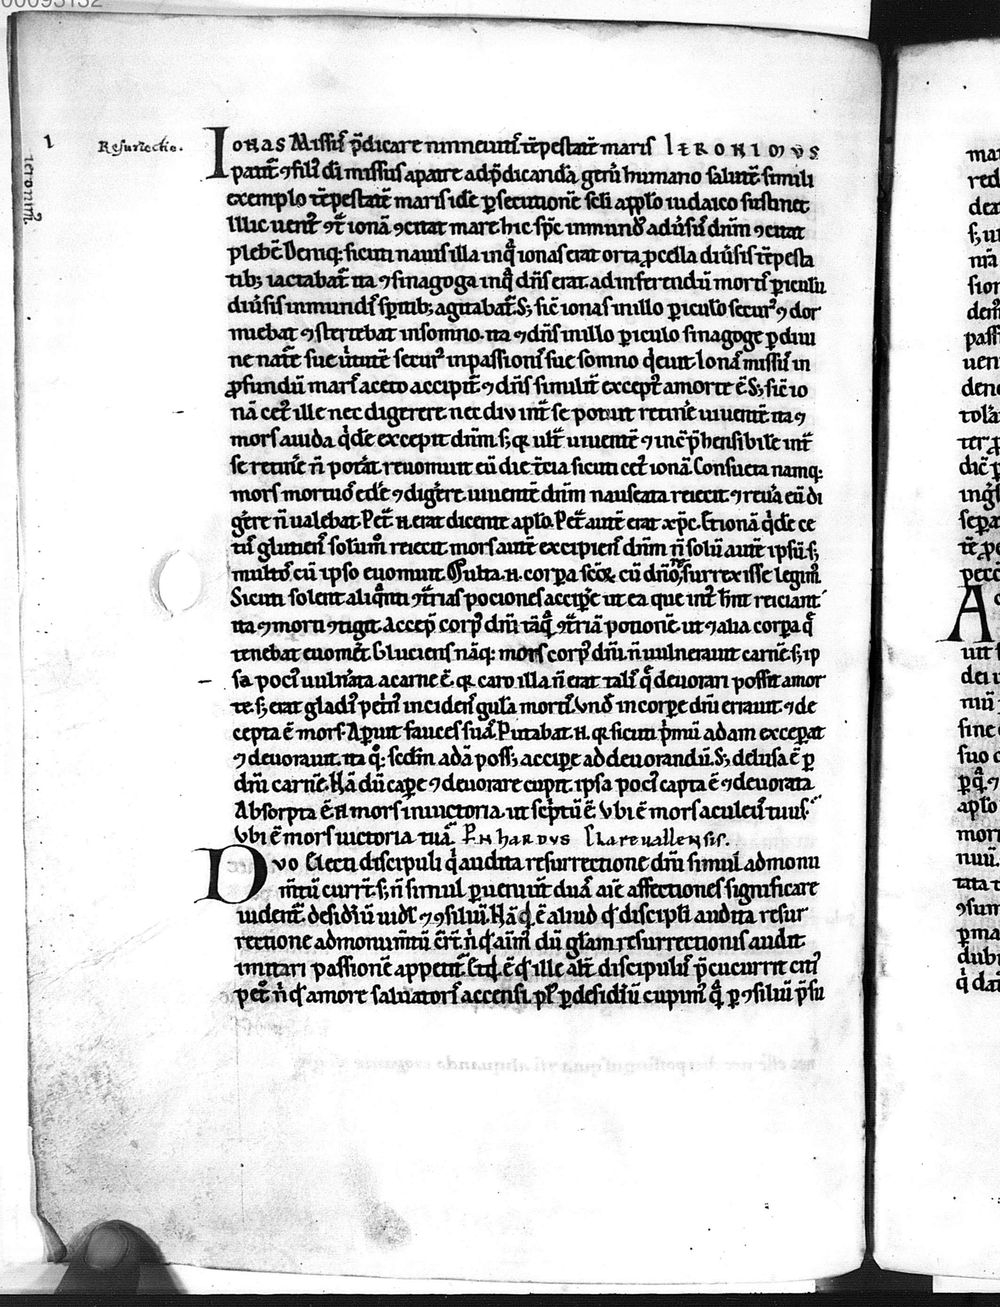 00095132
1 Resurrectio.
ieronimꝰ
Ionas Missus p̄dicare ninneuitis tēpestatē maris IERONIMVS
patit̄ ⁊ filiꝰ dī missus a patre ad p̄dicandā gen̄i humano salutē simili
exemplo tēpestatē maris idē ꝑsecutionē sc̄li a pplo iudaico sustinet
Illic uent̄ ꝯt̄ ionā ꝯcitat mare hic sp̄c inmundꝰ adūsus dn̄m ꝯcitat
plebē Deniq; sicuti nauis illa in q̄ ionas erat orta ꝓcella diūsis tēpesta
tib; iactabat̄ ita ⁊ sinagoga in q̄ dn̄s erat ad inferendū mortis ꝑiculū
diūsis inmundis sp̄itib; agitabat̄. S; sic̄ ionas in illo ꝑiculo securꝰ ⁊ dor
miebat ⁊ stertebat in somno. ita ⁊ dn̄s in illo ꝑiculo sinagoge ꝑ diui
ne nat̄e sue ūtutē securꝰ in passionis sue somno q̄euit. Ionā missū in
ꝓfundū maris a ceto accipit̄ ⁊ dn̄s similit̄ exceptꝰ a morte ē. S; sic̄ io
nā cetꝰ ille nec digerere nec diu int̄ se potuit retinē uiuentē ita ⁊
mors auida q̄dē excepit dn̄m. s; q; ult̄ uiuentē ⁊ inc̄p̄hensibilē int̄
se retinē n̄ potāt reuomuit eū die t̄cia sicuti cetꝰ ionā. Consueta namq;
mors mortuos edē ⁊ digēre uiuentē dn̄m nauseata reiecit ⁊ reūa eū di
gēre n̄ ualebat. Pet̄ .n. erat dicente aplo. Pet̄ autē erat xp̄c. Et ionā q̄dē ce
tus glutiens solum̄ reiecit mors autē excipiens dn̄m n̄ solū autē ipsū s;
multos cū ipso euomuit. Multa .n. corpa sc̄oꝝ cū dn̄o surrexisse legim̄.
Sicuti solent aliq̄nti ꝯt̄rias pociones accipē ut ea que int̄ hn̄t reiciant
ita ⁊ morti ꝯtigit. Accepit corpꝰ dn̄i tāq̄ ꝯt̄riā potionē ut ⁊ alia corpa q̄
tenebat euomēt. Glutiens nāq; mors corpꝰ dn̄i n̄ uulnerauit carnē s; ip
sa pociꝰ uuln̄ata a carne ē. q; caro illa n̄ erat talis q̄ deuorari possit a mor
te. s; erat gladiꝰ pet̄n̄ incidens gulā mortis. Vnd̄ in corpe dn̄i errauit ⁊ de
cepta ē mors. Apuit fauces suas. Putabat .n. q; sicuti p̄mū adam exceperat
⁊ deuorauit. ita q̄; sc̄dm adā poss; accipe ad deuorandū. S; delusa ē ꝑ
dn̄i carnē. Nā dū capē ⁊ deuorare cupit ipsa pociꝰ capta ē ⁊ deuorata.
Absorpta ē .n. mors in uictoria. ut sc̄ptū ē. Vbi ē mors aculeus tuus.
Vbi ē mors uictoria tua. B'nhardus Clareuallensis.
Dvo Electi discipuli q̄ audita resurrectione dn̄i simul ad monu
m̄tū currt̄. s; n̄ simul ꝑuenūt duas aīe affectiones significare
uident̄. desidiū uidl̄ ⁊ ꝯsiliū. Nā qd̄ ē aliud q̄ discipli audita resur
rectione ad monum̄tū currt̄. n̄ q̄ aīus dū gl̄am resurrectionis audit
imitari passionē appetit̄. Et qd̄ ē q̄ ille alt̄ discipulus p̄cucurrit citiꝰ
pet̄. n̄ q̄ amore saluatoris accensi. plꝰ ꝑ desidiū cupimꝰ q̄ ꝑ ꝯsiliū p̄su